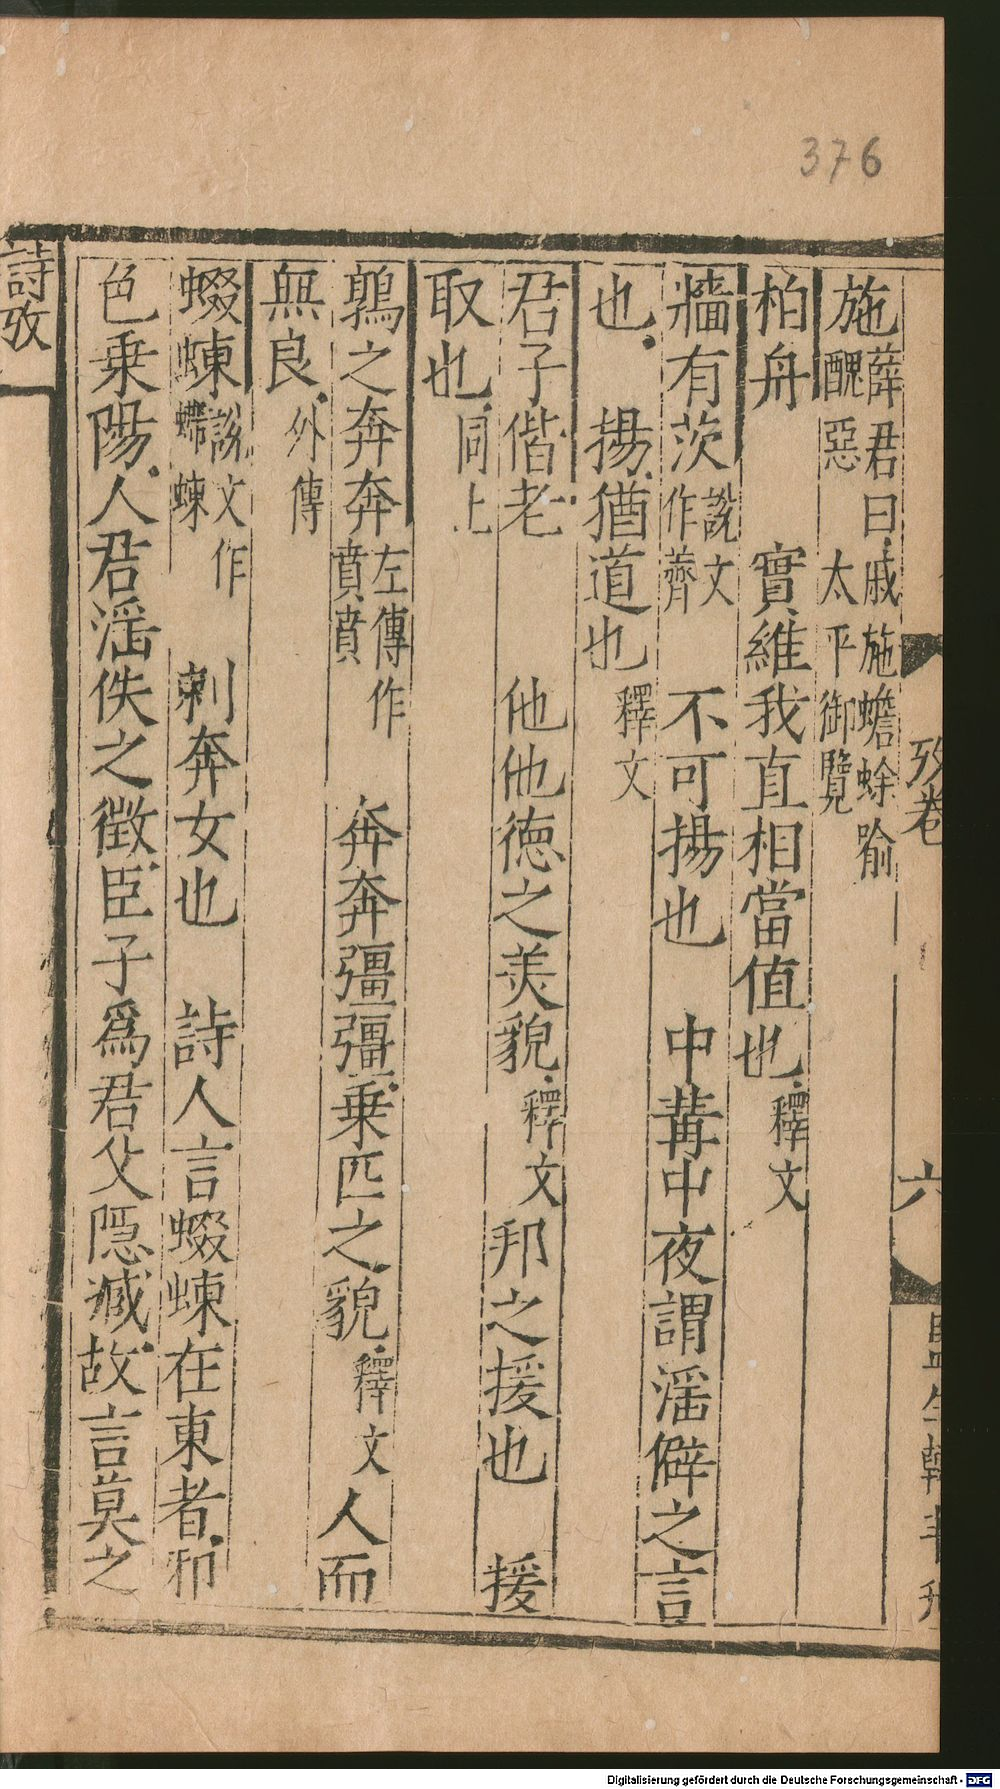 376
攷卷
六
施薛君曰戚施蟾蜍喻醜惡 太平御覽
柏舟 實維我直相當值也釋文
牆有茨說文作薺 不可揚也 中冓中夜謂淫僻之言
也 揚猶道也 釋文
君子偕老 他他德之美貌釋文邦之援也 援
取也同上
鶉之奔奔左傳作賁賁 奔奔彊彊乗匹之貌釋文人而
無良外傳
蝃蝀說文作蝃蝀 刺奔女也 詩人言蝃蝀在東者邪
色乗陽人君淫佚之徵臣子爲君父隠臧故言莫之
詩攷
Digitalisierung gefördert durch die Deutsche Forschungsgemeinschaft - DFG